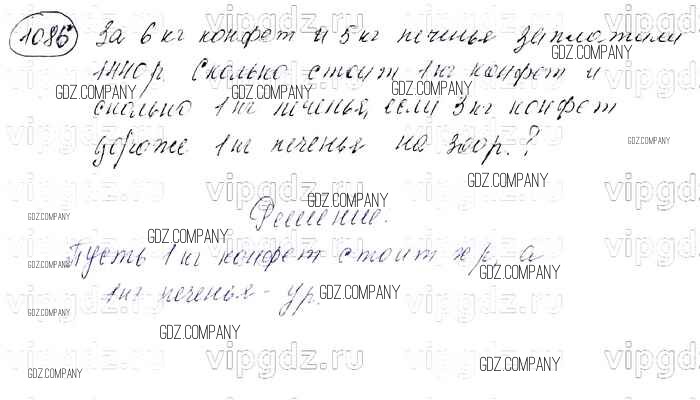 1086 За 6 кг конфет и 5 кг печенья заплатили
1440р. Сколько стоит 1 кг конфет и
сколько 1 кг печенья, если 3 кг конфет
дороже 1 кг печенья на 300р.?
Решение.
Пусть 1 кг конфет стоит x р, а
1кг печенья - y р.
GDZ.COMPANY
vipgdz.ru